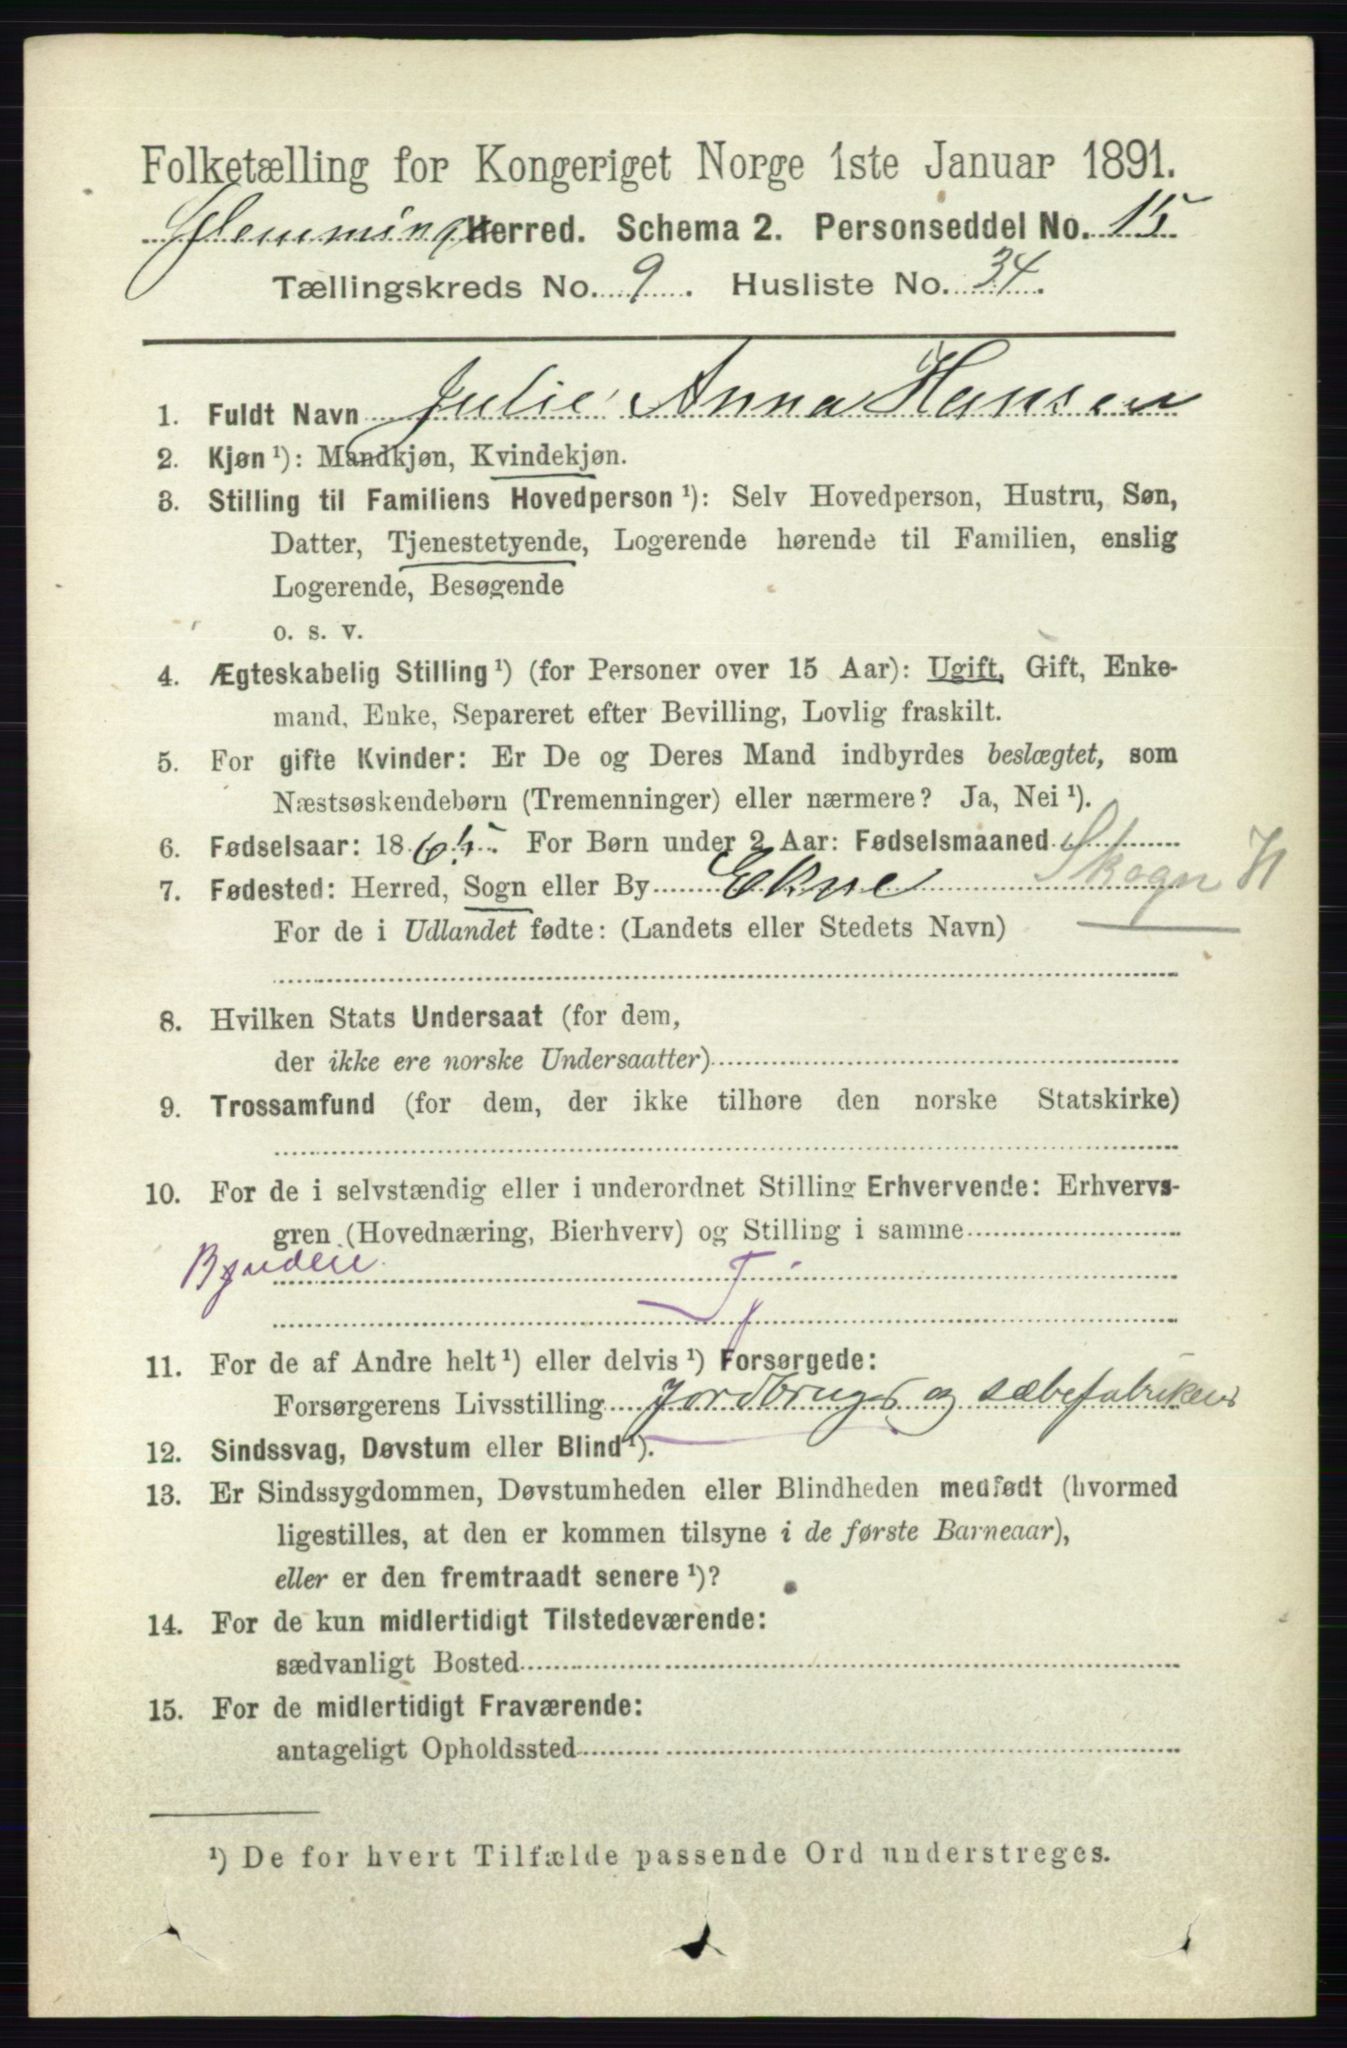 Folketælling for Kongeriget Norge 1ste Januar 1891.
Glemminge Herred. Schema 2. Personseddel No. 15
Tællingskreds No. 9. Husliste No. 34.
1. Fuldt Navn Julie Anna Hansen
2. Kjøn ¹): Mandkjøn, Kvindekjøn.
3. Stilling til Familiens Hovedperson ¹): Selv Hovedperson, Hustru, Søn,
Datter, Tjenestetyende, Logerende hørende til Familien, enslig
Logerende, Besøgende
o. s. v.
4. Ægteskabelig Stilling ¹) (for Personer over 15 Aar): Ugift, Gift, Enke-
mand, Enke, Separeret efter Bevilling, Lovlig fraskilt.
5. For gifte Kvinder: Er De og Deres Mand indbyrdes beslægtet, som
Næstsøskendebørn (Tremenninger) eller nærmere? Ja, Nei ¹).
6. Fødselsaar: 1865 For Børn under 2 Aar: Fødselsmaaned
7. Fødested: Herred, Sogn eller By Ekne Skogn H
For de i Udlandet fødte: (Landets eller Stedets Navn)
8. Hvilken Stats Undersaat (for dem,
der ikke ere norske Undersaatter)
9. Trossamfund (for dem, der ikke tilhøre den norske Statskirke)
10. For de i selvstændig eller i underordnet Stilling Erhvervende: Erhvervs-
gren (Hovednæring, Bierhverv) og Stilling i samme
Tj
11. For de af Andre helt ¹) eller delvis ¹) Forsørgede:
Forsørgerens Livsstilling Jordbrugs og sæbefabrikens
12. Sindssvag, Døvstum eller Blind ¹).
13. Er Sindssygdommen, Døvstumheden eller Blindheden medfødt (hvormed
ligestilles, at den er kommen tilsyne i de første Barneaar),
eller er den fremtraadt senere ¹)?
14. For de kun midlertidigt Tilstedeværende:
sædvanligt Bosted
15. For de midlertidigt Fraværende:
antageligt Opholdssted
¹) De for hvert Tilfælde passende Ord understreges.